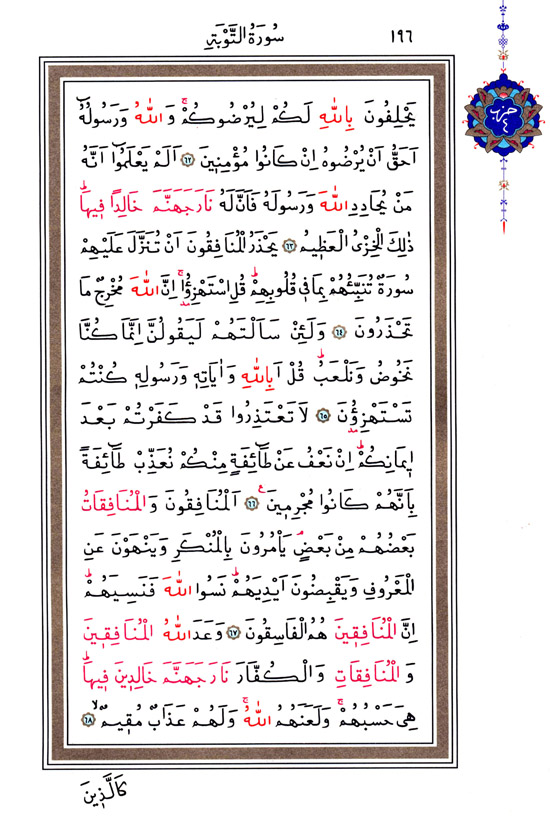 ١٩٦
سُورَةُ التَّوْبَةِ
حزب
٤
يَحْلِفُونَ بِاللّٰهِ لَكُمْ لِيُرْضُوكُمْۚ وَاللّٰهُ وَرَسُولُهُٓ
اَحَقُّ اَنْ يُرْضُوهُ اِنْ كَانُوا مُؤْمِنٖينَ ﴿٦٢﴾ اَلَمْ يَعْلَمُٓوا اَنَّهُ
مَنْ يُحَادِدِ اللّٰهَ وَرَسُولَهُ فَاَنَّ لَهُ نَارَ جَهَنَّمَ خَالِدًا فٖيهَاۜ
ذٰلِكَ الْخِزْىُ الْعَظٖيمُ ﴿٦٣﴾ يَحْذَرُ الْمُنَافِقُونَ اَنْ تُنَزَّلَ عَلَيْهِمْ
سُورَةٌ تُنَبِّئُهُمْ بِمَا فٖى قُلُوبِهِمْۜ قُلِ اسْتَهْزِؤُ۫اۚ اِنَّ اللّٰهَ مُخْرِجٌ مَا
تَحْذَرُونَ ﴿٦٤﴾ وَلَئِنْ سَاَلْتَهُمْ لَيَقُولُنَّ اِنَّمَا كُنَّا
نَخُوضُ وَنَلْعَبُۜ قُلْ اَبِاللّٰهِ وَاٰيَاتِهٖ وَرَسُولِهٖ كُنْتُمْ
تَسْتَهْزِؤُ۫نَ ﴿٦٥﴾ لَا تَعْتَذِرُوا قَدْ كَفَرْتُمْ بَعْدَ
اٖيمَانِكُمْۜ اِنْ نَعْفُ عَنْ طَٓائِفَةٍ مِنْكُمْ نُعَذِّبْ طَٓائِفَةً
بِاَنَّهُمْ كَانُوا مُجْرِمٖينَࣖ ﴿٦٦﴾ اَلْمُنَافِقُونَ وَالْمُنَافِقَاتُ
بَعْضُهُمْ مِنْ بَعْضٍۘ يَأْمُرُونَ بِالْمُنْكَرِ وَيَنْهَوْنَ عَنِ
الْمَعْرُوفِ وَيَقْبِضُونَ اَيْدِيَهُمْۜ نَسُوا اللّٰهَ فَنَسِيَهُمْۜ
اِنَّ الْمُنَافِقٖينَ هُمُ الْفَاسِقُونَ ﴿٦٧﴾ وَعَدَ اللّٰهُ الْمُنَافِقٖينَ
وَالْمُنَافِقَاتِ وَالْكُفَّارَ نَارَ جَهَنَّمَ خَالِدٖينَ فٖيهَاۜ
هِىَ حَسْبُهُمْۚ وَلَعَنَهُمُ اللّٰهُۚ وَلَهُمْ عَذَابٌ مُقٖيمٌۙ ﴿٦٨﴾
كَالَّذٖينَ